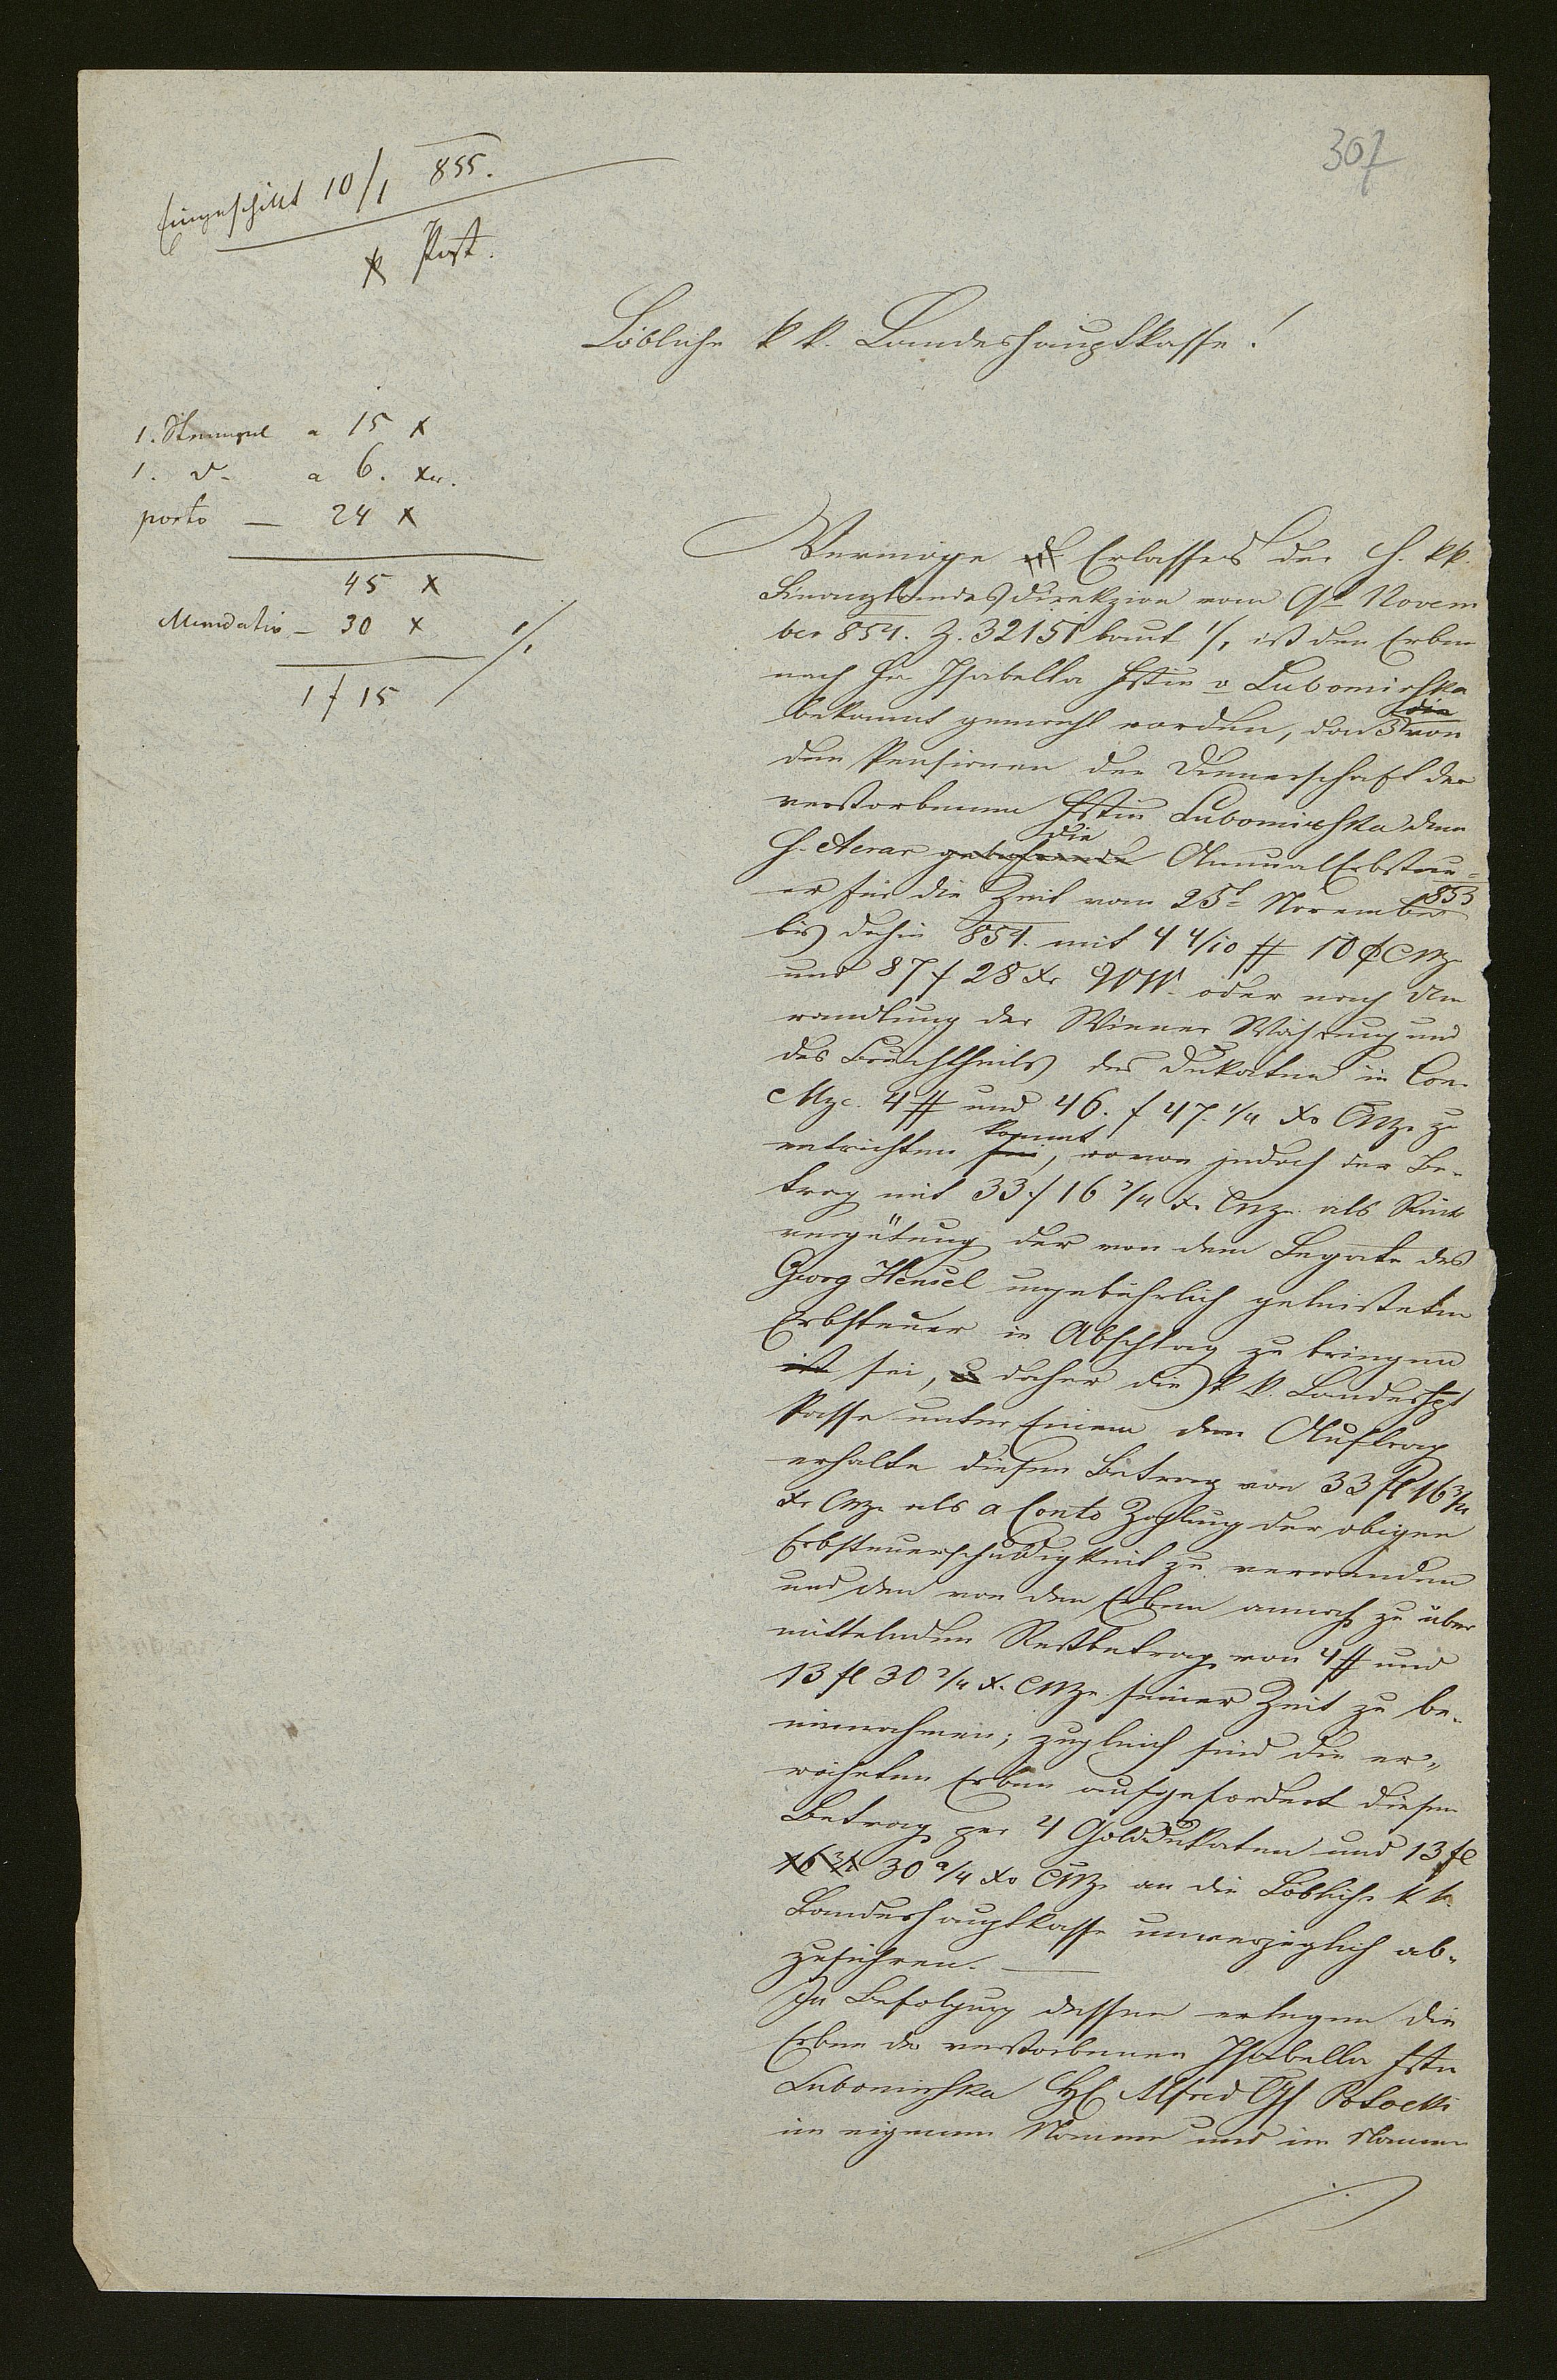 307
Eingeschikt 10/1 855.
p Post.
Löbliche k k. Landeshauptkasse!
1. Stempel a 15 x
1. d- a 6. xr.
porto — 24 x
45 x
Mundatio — 30 x
1 f 15
Vermöge Erlasses der h. kk.
Finanzlandesdirekzion vom 9t Novem
ber 854. Z. 32151 laut 1/. ist den Erben
nach Fr. Isabella Fstin v Lubomirska
bekannt gemacht worden, daß die von
den Pensionen der Dienerschaft der
verstorbenen Fstin Lubomirska dem
h. Aerar gebührende die Annual Erbsteu=
er für die Zeit vom 25t November 853
bis dahin 854. mit 4 4/10 # CMz
und 87 f 28 xr WW. oder nach Um
wandlung der Wiener Währung und
des Bruchtheils des Dukaten in Con.
Mze. 4 # und 46. f 47. 1/4 xr CMz. zu
entrichten sei kommt, wovon jedoch der Be-
trag mit 33 f 16 3/4 x. CMz. als Rück
vergütung der von dem Legate des
Georg Hensel ungebührlich geleisteten
Erbsteuer in Abschlag zu bringen
ist sei, u daher die k k. Landeshpt
Kasse unter Einem den Auftrag
erhalte diesen Betrag von 33 fl 16 3/4
xr CMz. als a Conto Zahlung der obigen
Erbsteuerschuldigkeit zu verwenden
und den von den Erben annoch zu über
mittelnden Restbetrag von 4 # und
13 fl 30 2/4 x. CMze. seiner Zeit zu be-
einnahmen; zugleich sind die er-
wähnten Erben aufgefordert diesen
Betrag per 4 Golddukaten und 13 fl
16 3/4 30 2/4 xr CMz. an die Löbliche k k.
Landeshauptkasse unverzüglich ab-
zuführen. —
In Befolgung dessen erlegen die
Erben der verstorbenen Isabella Fstn
Lubomirska H Alfred Gf Potocki
im eigenen Namen und im Namen